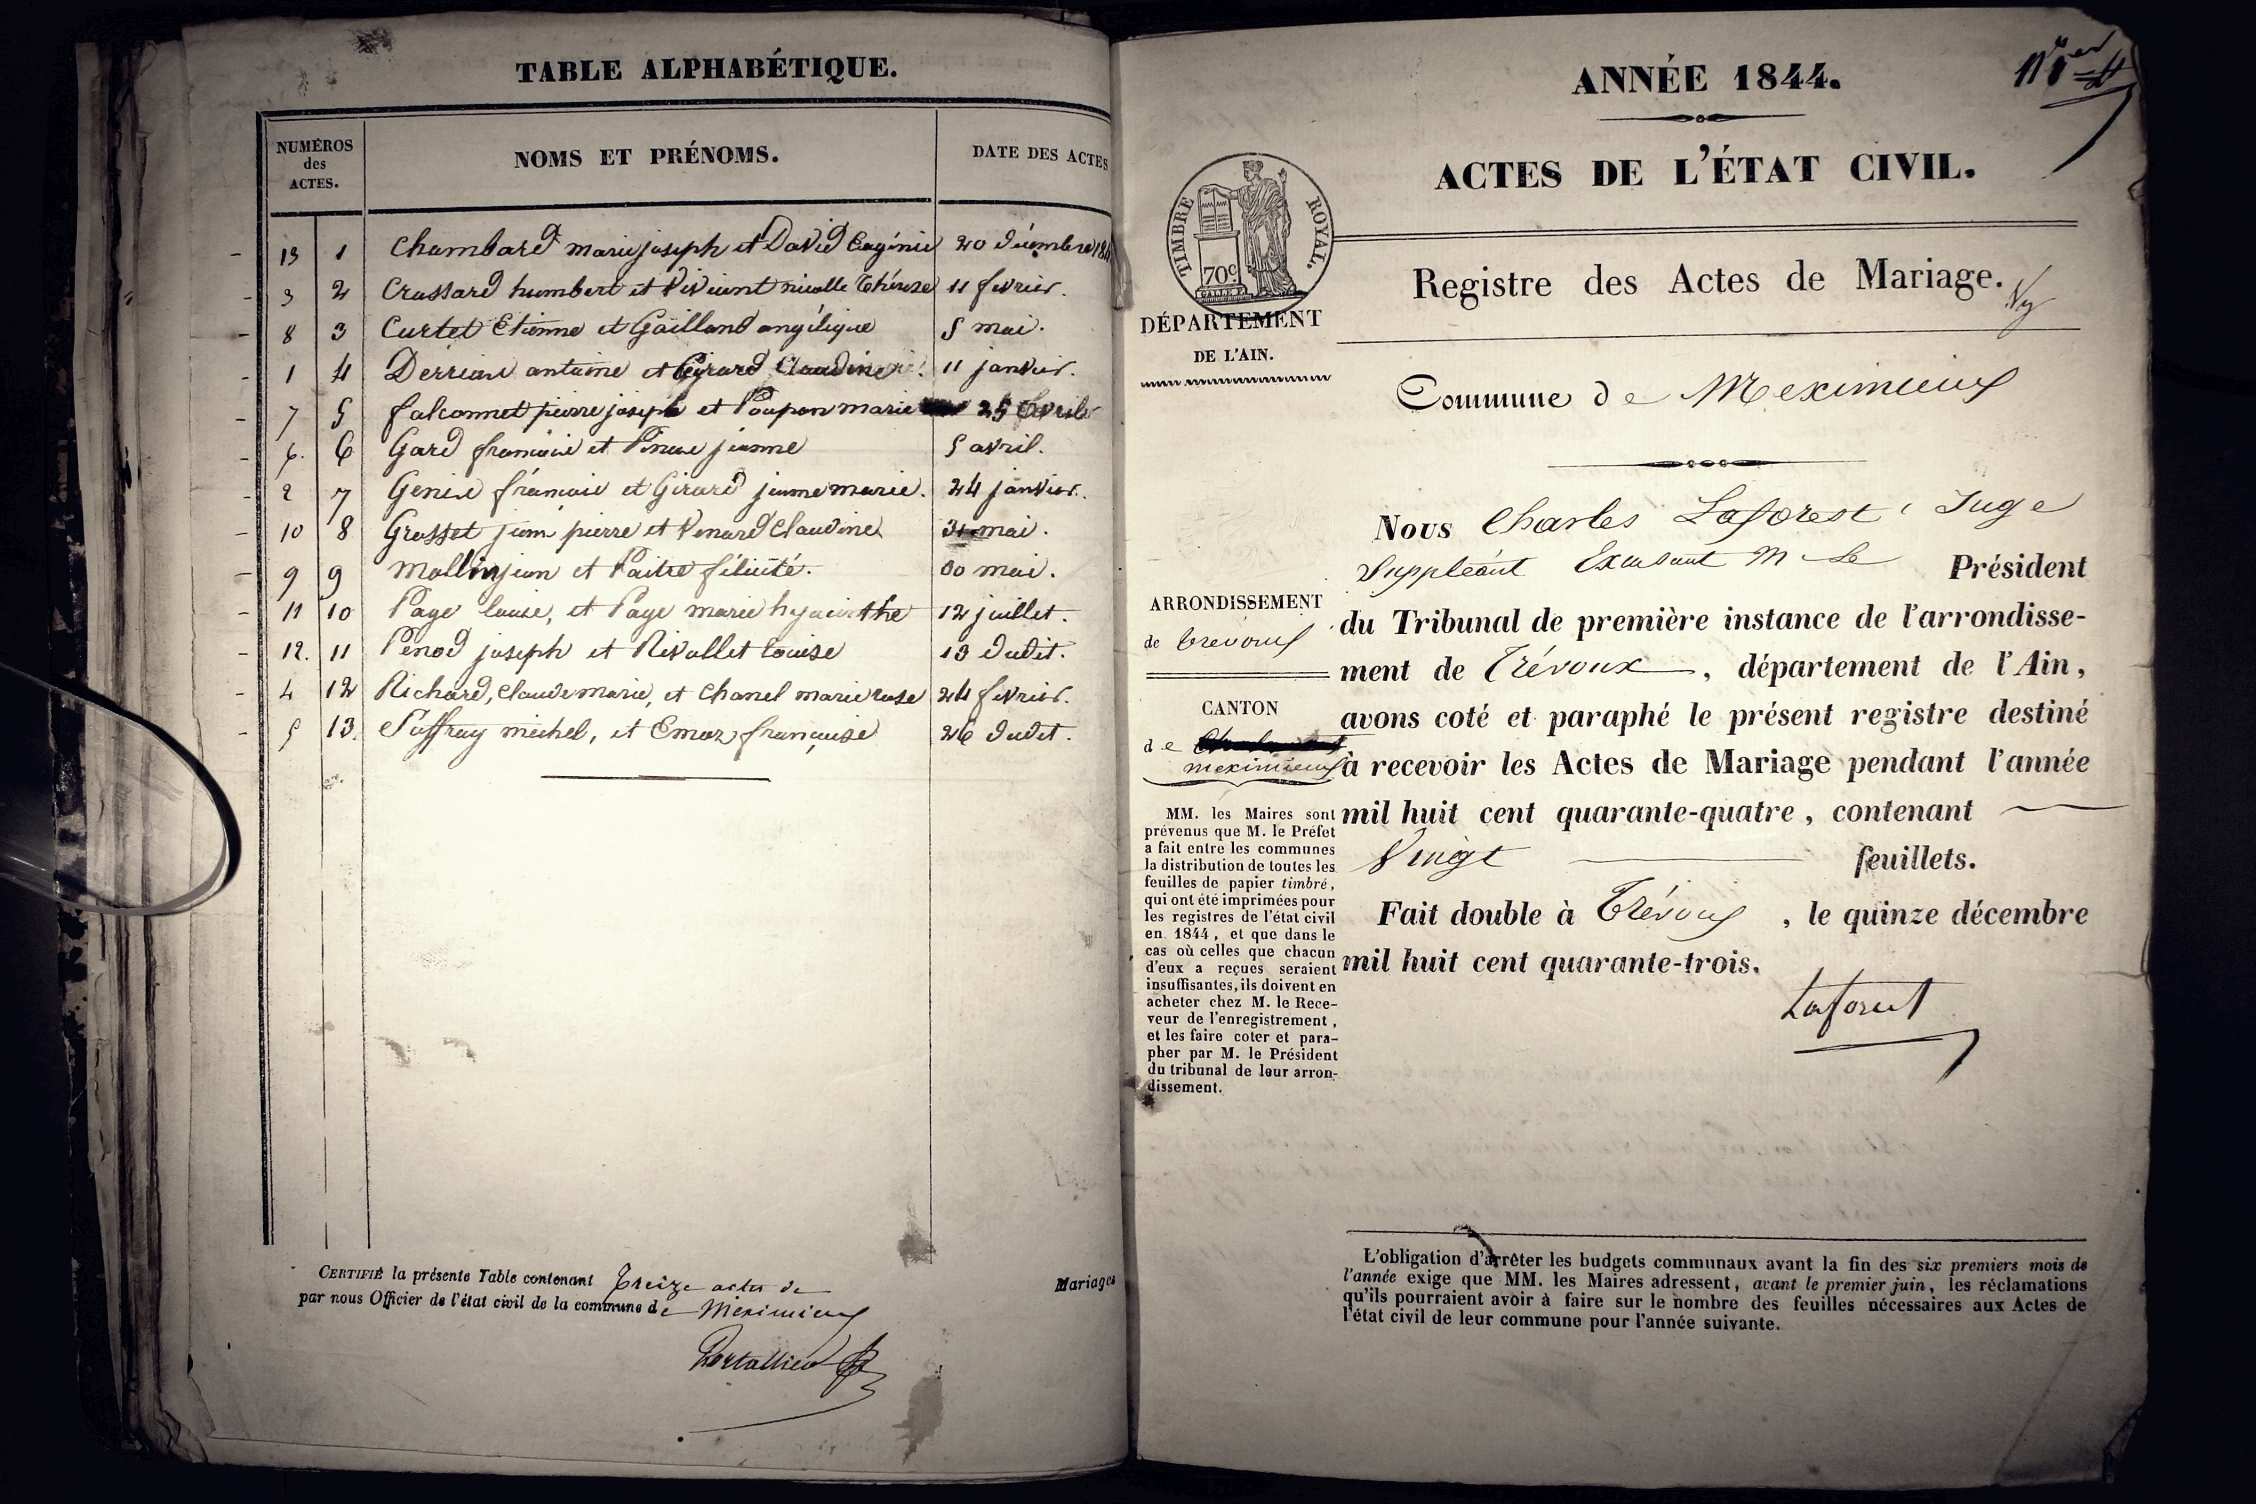 TABLE ALPHABÉTIQUE.
NUMÉROS
des
ACTES.
NOMS ET PRÉNOMS.
DATE DES ACTES
13 1 Chambard marie joseph et David Eugénie 20 décembre 184
3 2 Crassard humbert et Vivient nicolle thérèse 11 fevrier.
8 3 Curtet Etienne et Gailland angélique 5 mai.
1 4 antoine et Girard Claudine 11 janvier.
7 5 falconnet pierre joseph et Poupon marie 25 avril
6. 6 Gard et jeanne 5 avril.
2 7 et Girard jeanne marie. 24 janvier.
10 8 Grosset jean pierre et Venard Claudine mai.
9 9 jean et félicité. mai.
11 10 Page louise, et Page marie hyacinthe 12 juillet.
12. 11 Penod joseph et Rivollet Louise 13 dudit.
4 12 Richard, Claude marie, et Chanel marie rose 24 fevrier.
5 13. michel, et Emoz françoise 26 dudit.
CERTIFIÉ la présente Table contenant Treize actes de
par nous Officier de l'état civil de la commune de Meximieux
Mariages
ANNÉE 1844.
ACTES DE L'ÉTAT CIVIL.
TIMBRE ROYAL.
70c
DÉPARTEMENT
DE L'AIN.
Registre des Actes de Mariage.
Commune de Meximieux
Nous Charles Laforest, Juge
Suppléant M Le Président
du Tribunal de première instance de l'arrondisse-
ment de Trévoux, département de l'Ain,
avons coté et paraphé le présent registre destiné
à recevoir les Actes de Mariage pendant l'année
mil huit cent quarante-quatre, contenant
Vingt feuillets.
Fait double à Trévoux, le quinze décembre
mil huit cent quarante-trois.
Laforest
ARRONDISSEMENT
de Trévoux
CANTON
de
meximieux
MM. les Maires sont
prévenus que M. le Préfet
a fait entre les communes
la distribution de toutes les
feuilles de papier timbré,
qui ont été imprimées pour
les registres de l'état civil
en 1844, et que dans le
cas où celles que chacun
d'eux a reçues seraient
insuffisantes, ils doivent en
acheter chez M. le Rece-
veur de l'enregistrement,
et les faire coter et para-
pher par M. le Président
du tribunal de leur arron-
dissement.
L'obligation d'arrêter les budgets communaux avant la fin des six premiers mois de
l'année exige que MM. les Maires adressent, avant le premier juin, les réclamations
qu'ils pourraient avoir à faire sur le nombre des feuilles nécessaires aux Actes de
l'état civil de leur commune pour l'année suivante.